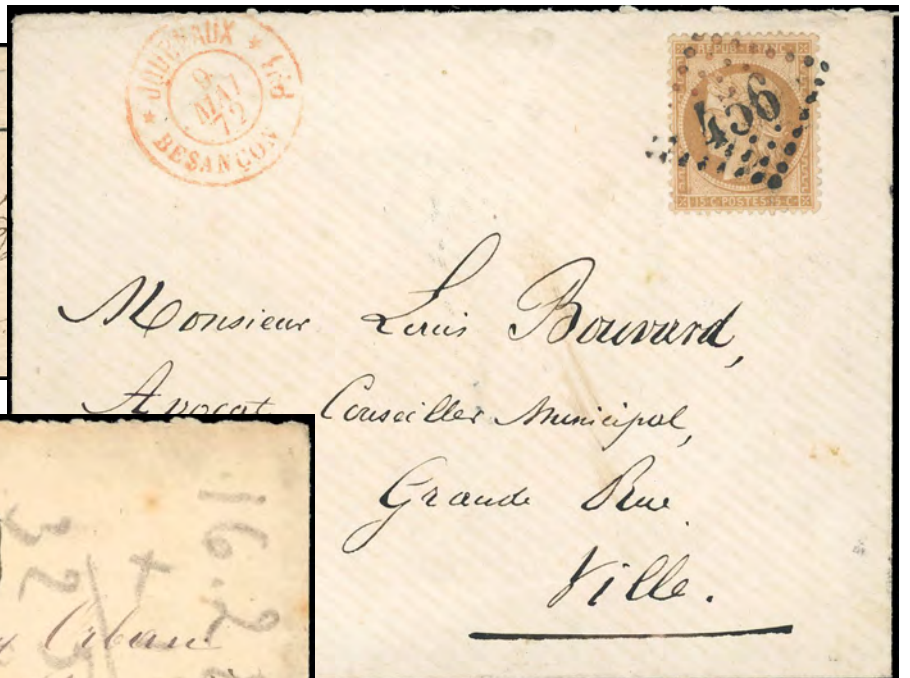 JOURNAUX * PP4 *
9
MAI
72
BESANÇON
REPUB · FRANC ·
456
15 C · POSTES · 15 C ·
Monsieur Louis Bouvard,
Avocat, Conseiller Municipal,
Grande Rue
Ville.
16-2
+
32
Urbain